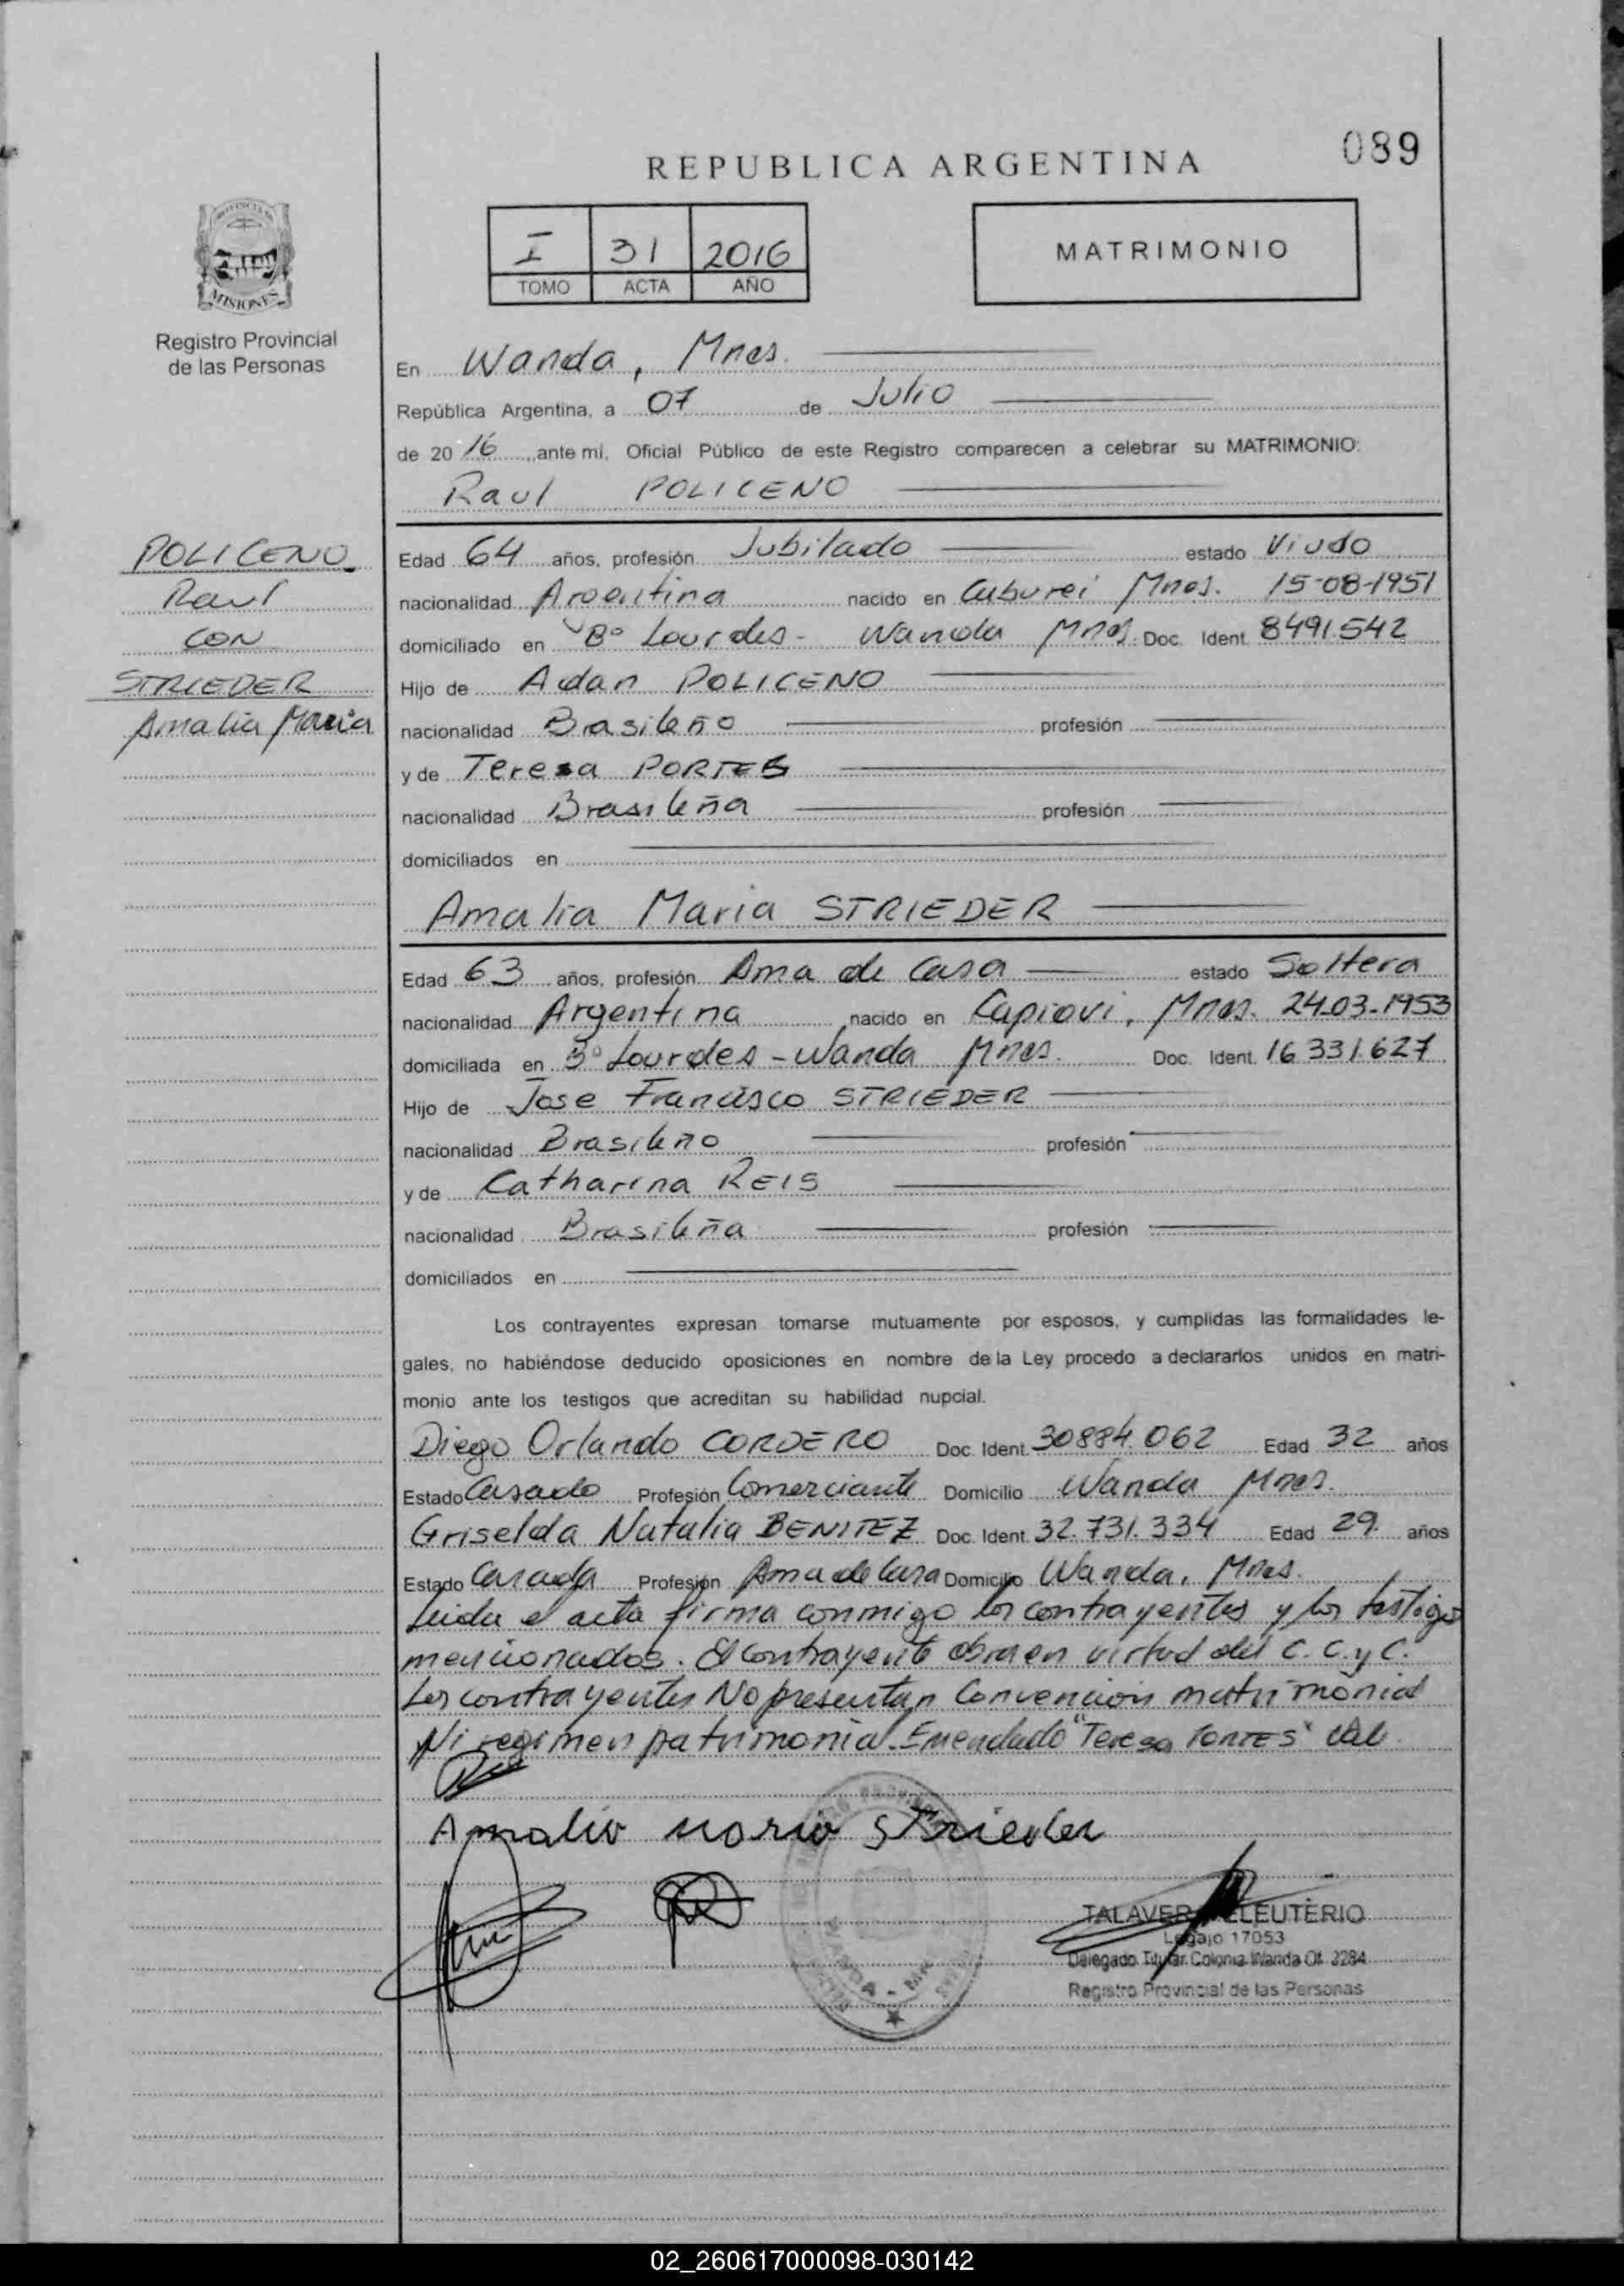 089
REPUBLICA ARGENTINA
I 31 2016
TOMO ACTA AÑO
MATRIMONIO
PROVINCIA DE
MISIONES
Registro Provincial
de las Personas
En Wanda, Mnes.
República Argentina, a 07 de Julio
de 20 16, ante mí, Oficial Público de este Registro comparecen a celebrar su MATRIMONIO:
Raul POLICENO
POLICENO
Raul
CON
STRIEDER
Amalia Maria
Edad 64 años, profesión Jubilado estado Viudo
nacionalidad Argentina nacido en Cuburei Mnes. 15-08-1951
domiciliado en Bº Lourdes - Wanda Mnes. Doc. Ident. 8491.542
Hijo de Adan POLICENO
nacionalidad Brasileño profesión
y de Teresa PORTES
nacionalidad Brasileña profesión
domiciliados en
Amalia Maria STRIEDER
Edad 63 años, profesión Ama de Casa estado Soltera
nacionalidad Argentina nacido en Capiovi, Mnes. 24-03-1953
domiciliada en Bº Lourdes - Wanda Mnes. Doc. Ident. 16.331.627
Hijo de Jose Francisco STRIEDER
nacionalidad Brasileño profesión
y de Catharina REIS
nacionalidad Brasileña profesión
domiciliados en
Los contrayentes expresan tomarse mutuamente por esposos, y cumplidas las formalidades le-
gales, no habiéndose deducido oposiciones en nombre de la Ley procedo a declararlos unidos en matri-
monio ante los testigos que acreditan su habilidad nupcial.
Diego Orlando CORDERO Doc. Ident. 30884.062 Edad 32 años
Estado Casado Profesión Comerciante Domicilio Wanda Mnes.
Griselda Natalia BENITEZ Doc. Ident. 32.731.334 Edad 29. años
Estado Casada Profesión Ama de Casa Domicilio Wanda, Mnes.
Leida el acta firma conmigo los contrayentes y los testigos
mencionados. El contrayente obra en virtud del C. C. y C.
Los contrayentes No presentan Convencion matrimonial
Ni regimen patrimonial. Enmendado "Teresa PORTES" Vale
Amalia Maria Strieder
WANDA - Mnes
TALAVERA ELEUTERIO
Legajo 17053
Delegado Titular Colonia Wanda Of. 3284
Registro Provincial de las Personas
02_260617000098-030142